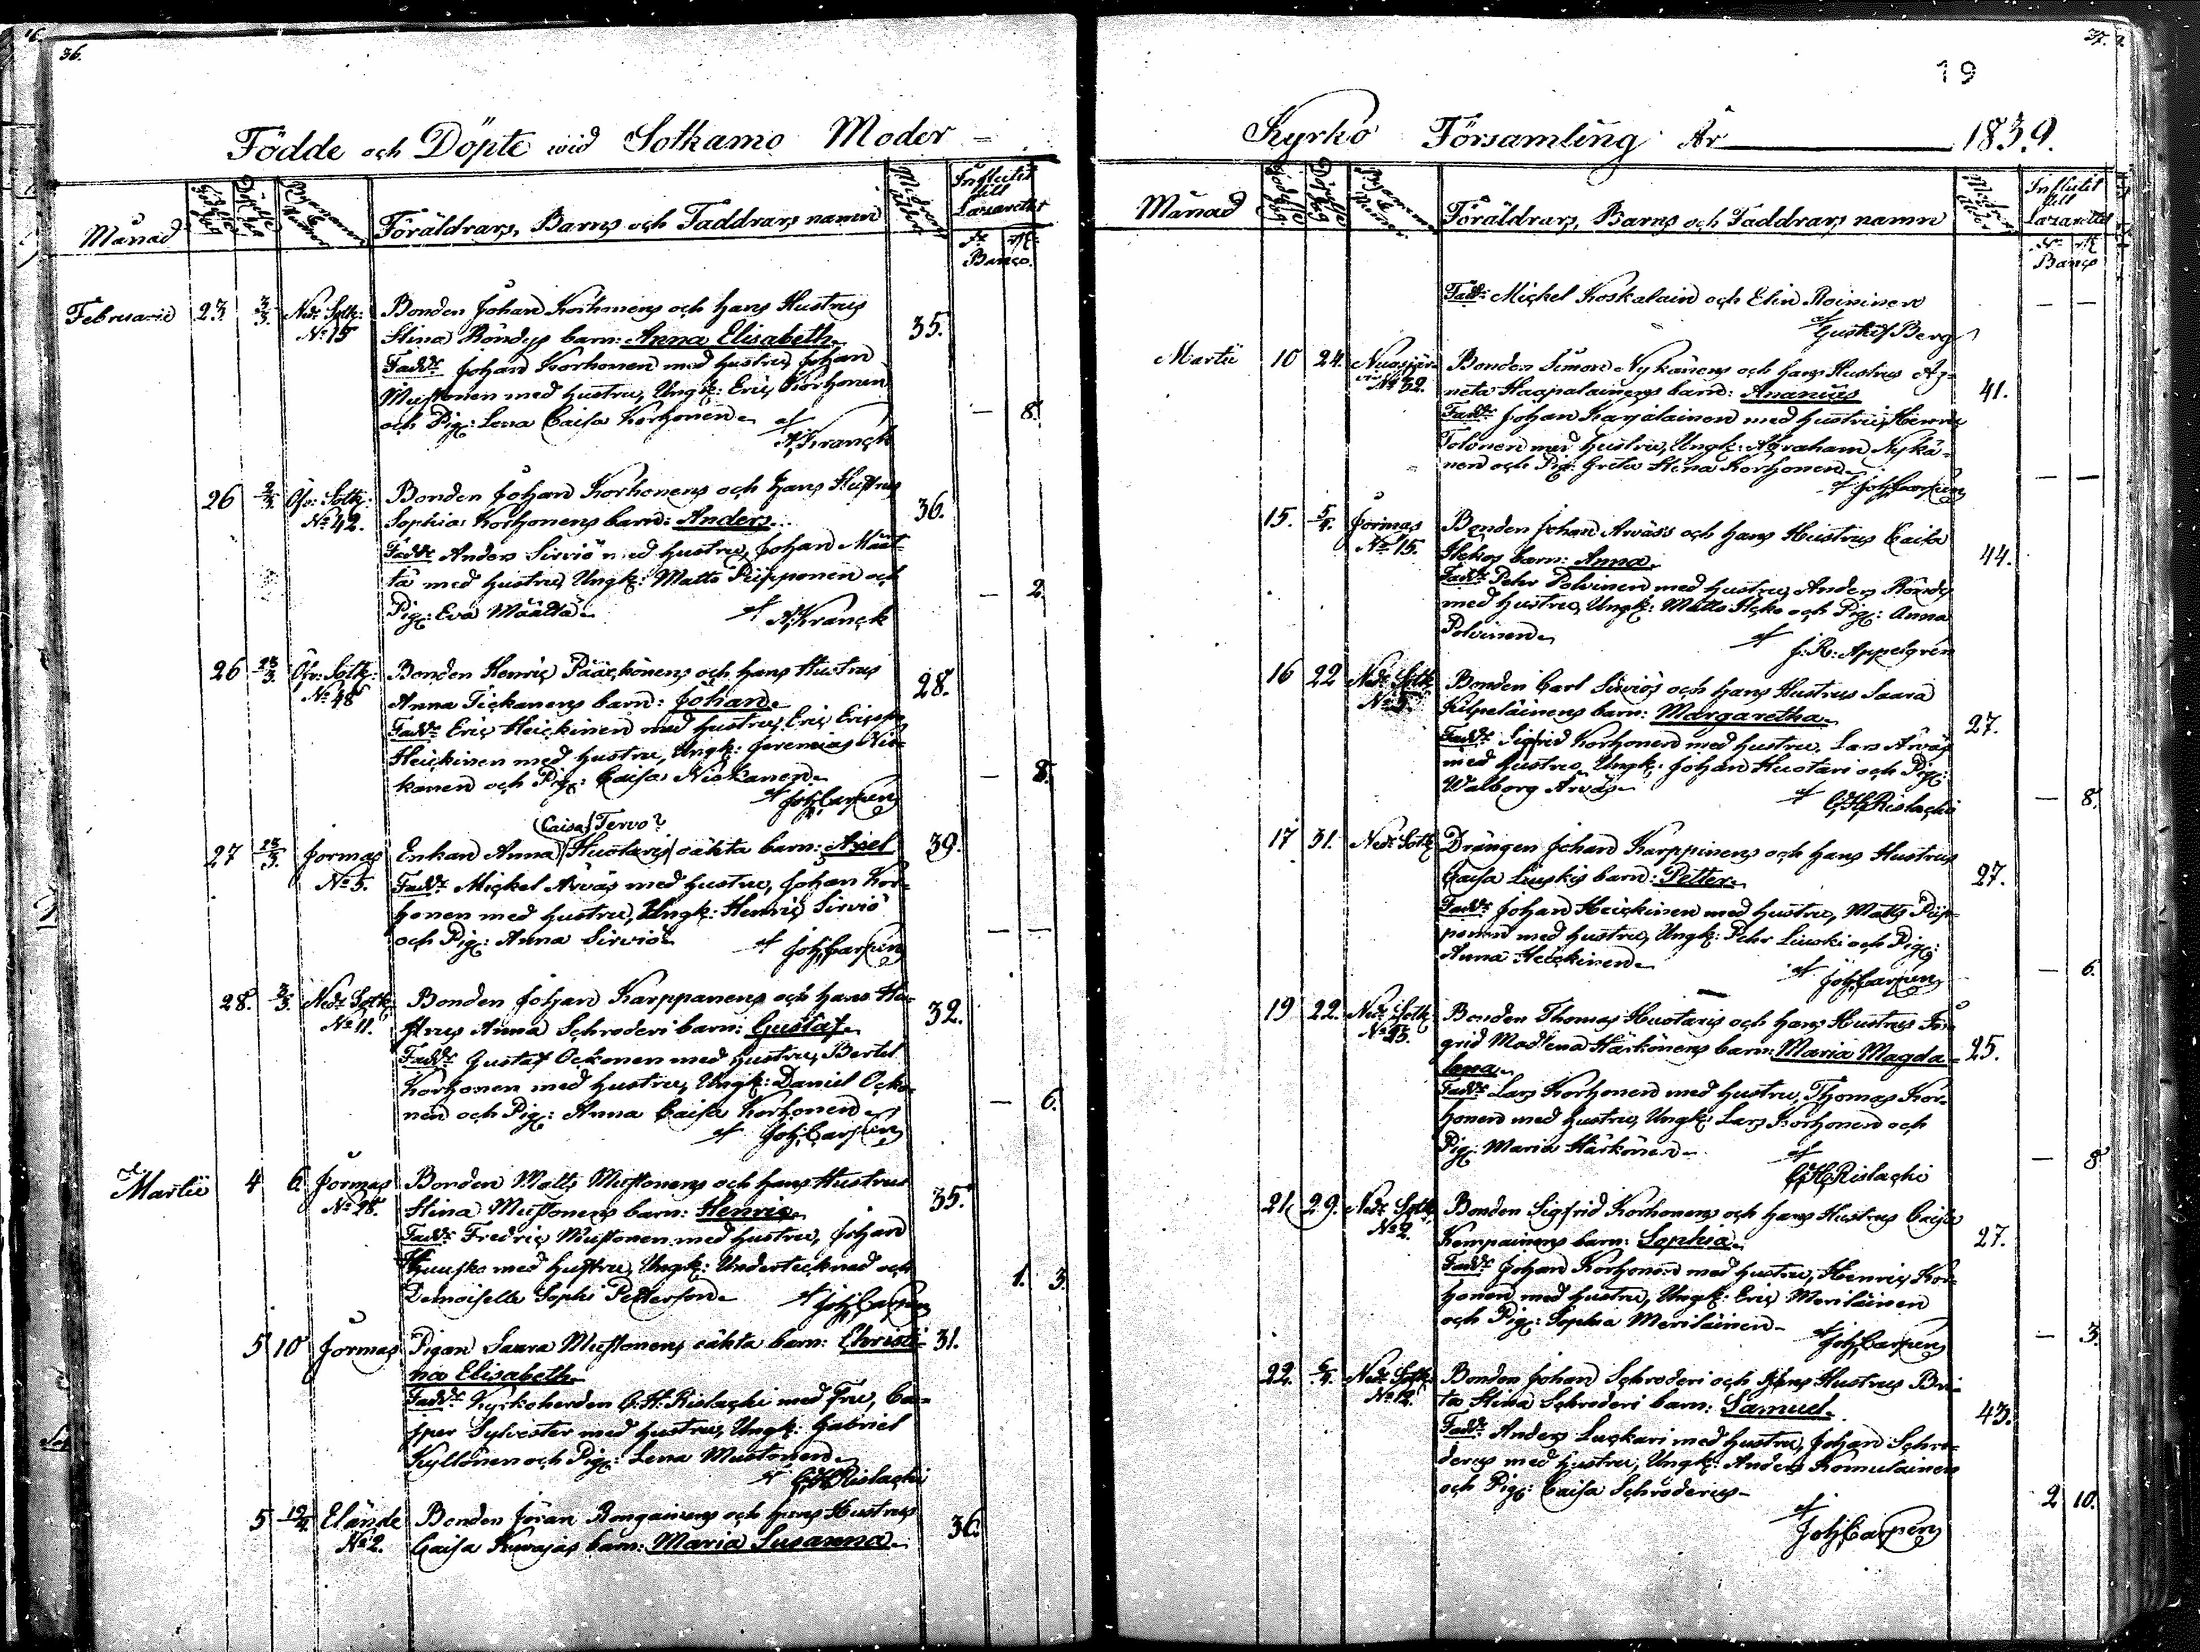 36.
Födde och Döpte wid Sotkamo Moder=
Månad
Födelse dag
Döpelse dag
Föräldrars, Barns och Faddrars namn
Modrens ålder
Influtit till Lazarettet
Banco.
Februarii 23. 3/3. Ned: Sotk: Bonden Johan Korhonens och hans Hustrus
No 15 Stina Röndys barn: Anna Elisabeth 35.
Fadd: Johan Korhonen med hustru, Johan
Mustonen med hustru, Ungk: Eric Korhonen
och Pig: Lena Caisa Korhonen — 8.
af A, Kranck
26 Öfv: Sotk: Bonden Johan Korhonens och hans Hustrus
No 42. Sophia Korhonens barn: Anders 36.
Fadd: Anders Sirviö med hustru, Johan Määt-
tä med hustru, Ungk: Matts Piipponen och
Pig: Eva Määttä — 2.
af A, Kranck
26 23/3. Öfv: Sotk: Bonden Henric Pääckönens och hans Hustrus
No 48 Anna Tickanens barn: Johan 28.
Fadd: Eric Heickinen med hustru, Eric Ericss:
Heickinen med hustru, Ungk: Jeremias Nis-
kanen och Pig: Caisa Niskanen — 8.
af Joh, Carpen
(Caisa) Tervo?
27 23/3. Jormas Enkan Anna Huotaris oäkta barn: Axel 39.
No 5. Fadd: Mickel Arväs med hustru, Johan Kor-
honen med hustru, Ungk: Henric Sirviö
och Pig: Anna Sirviö — —
af Joh, Carpen
28. 3/3. Ned: Sotk: Bonden Johan Karppanens och hans Hu-
No 11. strus Anna Schroderi barn: Gustaf 32.
Fadd: Gustaf Ockonen med hustru, Bertel
Korhonen med hustru, Ungk: Daniel Ocko-
nen och Pig: Anna Caisa Korhonen — 6.
af Joh, Carpen
Martii 4 6 Jormas Bonden Matts Mustonens och hans Hustrus
No 28. Stina Mustonens barn: Henric 35.
Fadd: Fredric Mustonen med hustru, Johan
Huusko med hustru, Ungk: Undertecknad och
Demoiselle Sophi Petterson 1. 3.
af Joh, Carpen
5 10 Jormas Pigan Saara Mustonens oäkta barn: Christi- 31.
na Elisabeth
Fadd: Kyrkoherden C. H. Rislachi med Fru, Ca-
sper Sylvester med hustru, Ungk: Gabriel
Kyllönen och Pig: Lena Mustonen
af C, H, Rislachi
5 Elände Bonden Jöran Rongainens och hans Hustrus
No 2. Caisa Kuvajas barn: Maria Susanna 36.
37.
19
Kyrko Församling År 1839.
Månad
Föräldrars, Barns och Faddrars namn
Influtit till Lazarettet
Banco
Fadd: Mickel Koskalain och Elin Roininen — —
af Gustaf Berg
Martii 10 24. Nuasjärvi Bonden Simon Nykänens och hans Hustrus Ag-
No 32. neta Haapalainens barn: Ananias 41.
Fadd: Johan Karjalainen med hustru, Henric
Tolonen med hustru, Ungk: Abraham Nykä-
nen och Pig: Greta Stina Korhonen — —
af Joh, Carpen
15. 5/4. Jormas Bonden Johan Arväss och hans Hustrus Caisa
No 15. Heckos barn: Anna 44.
Fadd: Pehr Polvinen med hustru, Anders Röndy
med hustru, Ungk: Matts Hecko och Pig: Anna
Polvinen
af J. R. Appelgrén
16 22 Ned: Sotk: Bonden Carl Sirviös och hans Hustrus Saara
Kilpeläinens barn: Margaretha 27.
Fadd: Sigfrid Korhonen med hustru, Lars Arväs
med hustru, Ungk: Johan Huotari och Pig:
Walborg Arväs — 8.
af C, H, Rislachi
17 31. Ned: Sotk: Drängen Johan Karppinens och hans Hustrus
Caisa Liuskis barn: Petter 27.
Fadd: Johan Heickinen med hustru, Matts Piip-
ponen med hustru, Ungk: Pehr Liuski och Pig:
Anna Heickinen — 6.
af Joh, Carpen
19 22. Ned: Sotk: Bonden Thomas Huotaris och hans Hustrus In-
No 25. grid Madlena Härkönens barn: Maria Magda- 25.
lena
Fadd: Lars Korhonen med hustru, Thomas Kor-
honen med hustru, Ungk: Lars Korhonen och
Pig: Maria Härkönen — 8
af C, H, Rislachi
21 29. Ned: Sotk: Bonden Sigfrid Korhonens och hans Hustrus Caisa
No 2. Kempainens barn: Sophia 27.
Fadd: Johan Korhonen med hustru, Henric Kor-
honen med hustru, Ungk: Eric Meriläinen
och Pig: Sophia Meriläinen — 3.
af Joh, Carpen
22. Ned: Sotk: Bonden Johan Schroderi och hans Hustrus Bri-
No 12. ta Stina Schroderi barn: Samuel 43.
Fadd: Anders Luckari med hustru, Johan Schro-
derus med hustru, Ungk: Anders Komulainen
och Pig: Caisa Schroderus 2 10.
af
Joh, Carpen